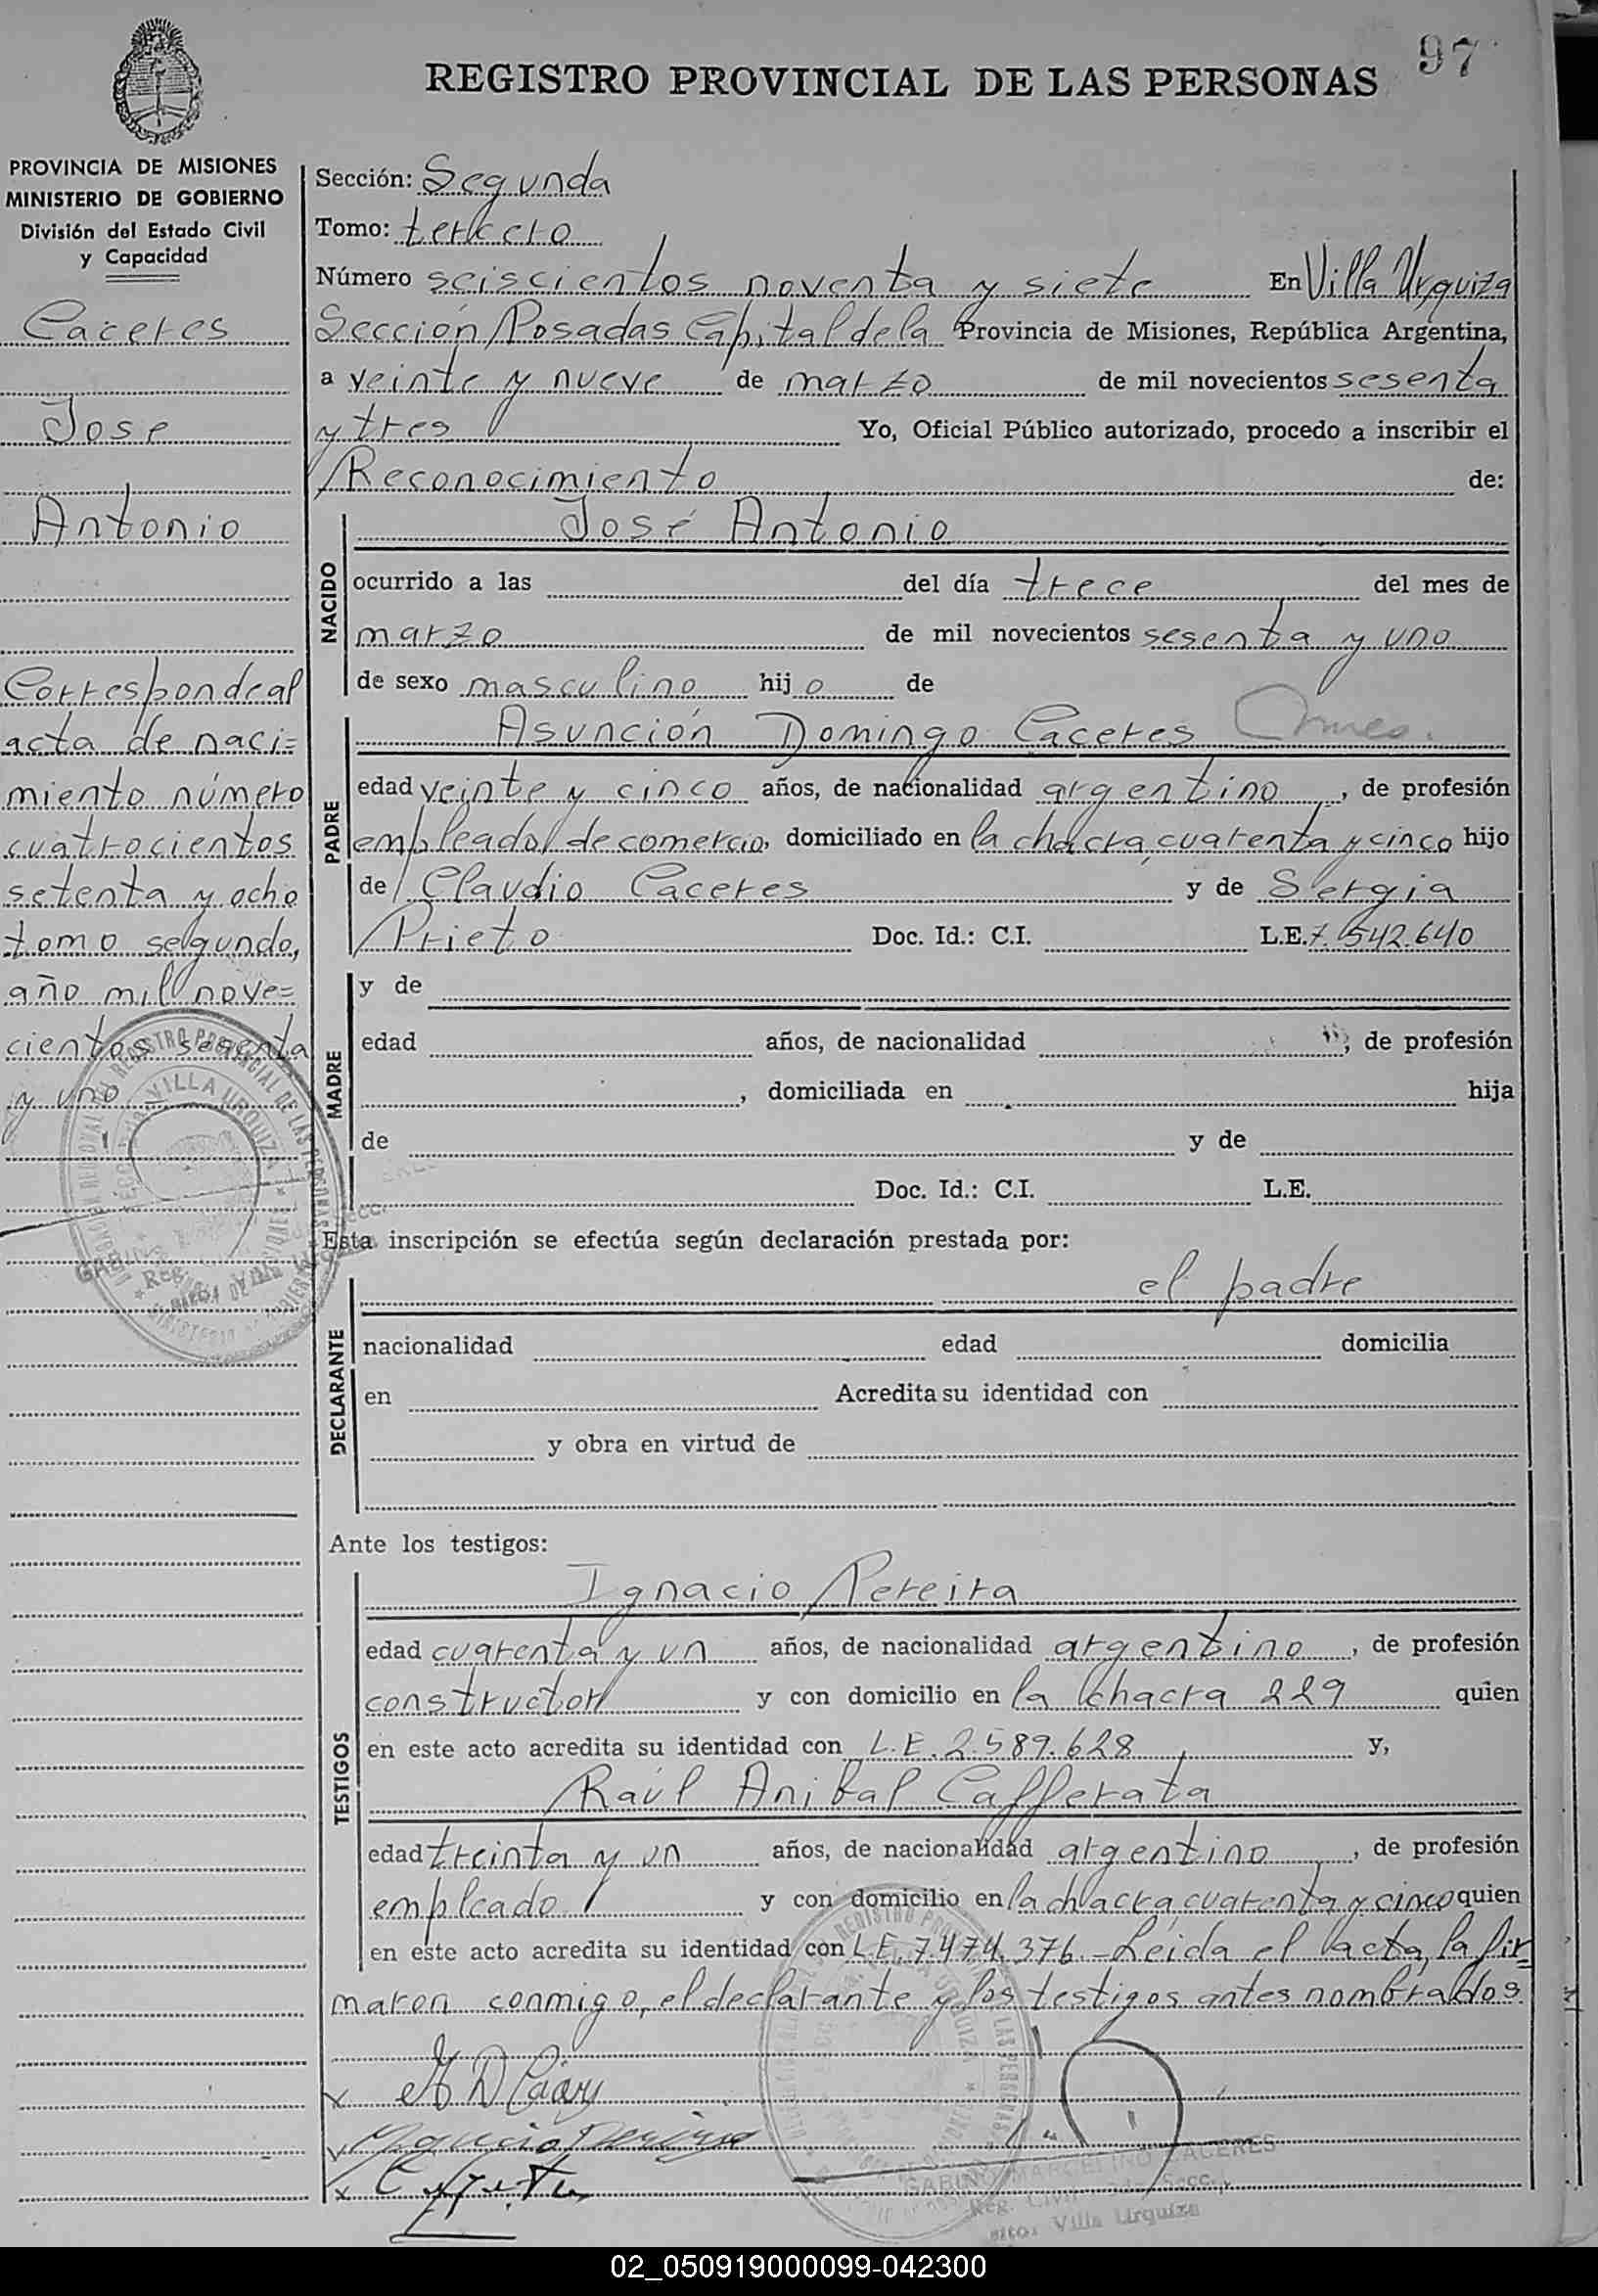 97
REGISTRO PROVINCIAL DE LAS PERSONAS
PROVINCIA DE MISIONES
MINISTERIO DE GOBIERNO
División del Estado Civil
y Capacidad
Caceres
Jose
Antonio
Corresponde al
acta de naci=
miento número
cuatrocientos
setenta y ocho
tomo segundo,
año mil nove=
cientos sesenta
y uno
Sección: Segunda
Tomo: tercero
Número seiscientos noventa y siete En Villa Urquiza
Sección Posadas Capital de la Provincia de Misiones, República Argentina,
a veinte y nueve de marzo de mil novecientos sesenta
y tres Yo, Oficial Público autorizado, procedo a inscribir el
Reconocimiento de:
NACIDO
José Antonio
ocurrido a las del día trece del mes de
marzo de mil novecientos sesenta y uno
de sexo masculino hijo de
PADRE
Asunción Domingo Caceres
edad veinte y cinco años, de nacionalidad argentino, de profesión
empleado de comercio, domiciliado en la chacra cuarenta y cinco hijo
de Claudio Caceres y de Sergia
Prieto Doc. Id.: C.I. L.E. 7.542.640
MADRE
y de
edad años, de nacionalidad , de profesión
, domiciliada en hija
de y de
Doc. Id.: C.I. L.E.
Esta inscripción se efectúa según declaración prestada por:
DECLARANTE
el padre
nacionalidad edad domicilia
en Acredita su identidad con
y obra en virtud de
Ante los testigos:
TESTIGOS
Ignacio Pereira
edad cuarenta y un años, de nacionalidad argentino, de profesión
constructor y con domicilio en la chacra 229 quien
en este acto acredita su identidad con L.E. 2.589.628 y,
Raúl Anibal Cafferata
edad treinta y un años, de nacionalidad argentino, de profesión
empleado y con domicilio en la chacra cuarenta y cinco quien
en este acto acredita su identidad con L.E. 7.474.376.- Leida el acta, la fir=
maron conmigo, el declarante y los testigos antes nombrados.
GABINO MARCELINO CACERES
Villa Urquiza
02_050919000099-042300